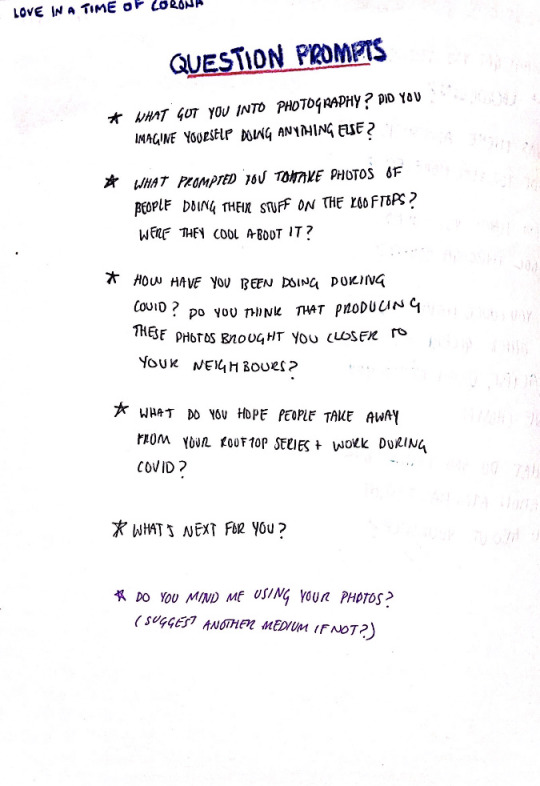 LOVE IN A TIME OF CORONA
QUESTION PROMPTS
★ WHAT GOT YOU INTO PHOTOGRAPHY? DID YOU
IMAGINE YOURSELF DOING ANYTHING ELSE?
★ WHAT PROMPTED YOU TO TAKE PHOTOS OF
PEOPLE DOING THEIR STUFF ON THE ROOFTOPS?
WERE THEY COOL ABOUT IT?
★ HOW HAVE YOU BEEN DOING DURING
COVID? DO YOU THINK THAT PRODUCING
THESE PHOTOS BROUGHT YOU CLOSER TO
YOUR NEIGHBOURS?
★ WHAT DO YOU HOPE PEOPLE TAKE AWAY
FROM YOUR ROOFTOP SERIES + WORK DURING
COVID?
★ WHAT'S NEXT FOR YOU?
★ DO YOU MIND ME USING YOUR PHOTOS?
(SUGGEST ANOTHER MEDIUM IF NOT?)